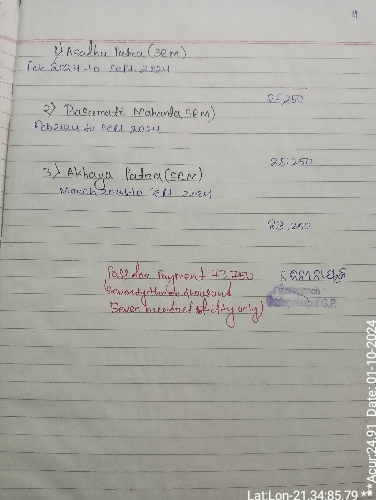 1) Asadhu Patra (SRM)
Feb 2024 to Sept 2024
25,250
2) Dasamati Mahanta (SRM)
Feb 2024 to Sept 2024
25,250
3) Akhaya Patra (SRM)
March 2024 to Sept 2024
23,250
Pass for Payment 73,750
Seventy three thousand
Seven hundred fifty only)
G.P.
Lat:Lon-21.34:85.79 ** Acur:24.91 Date: 01-10-2024